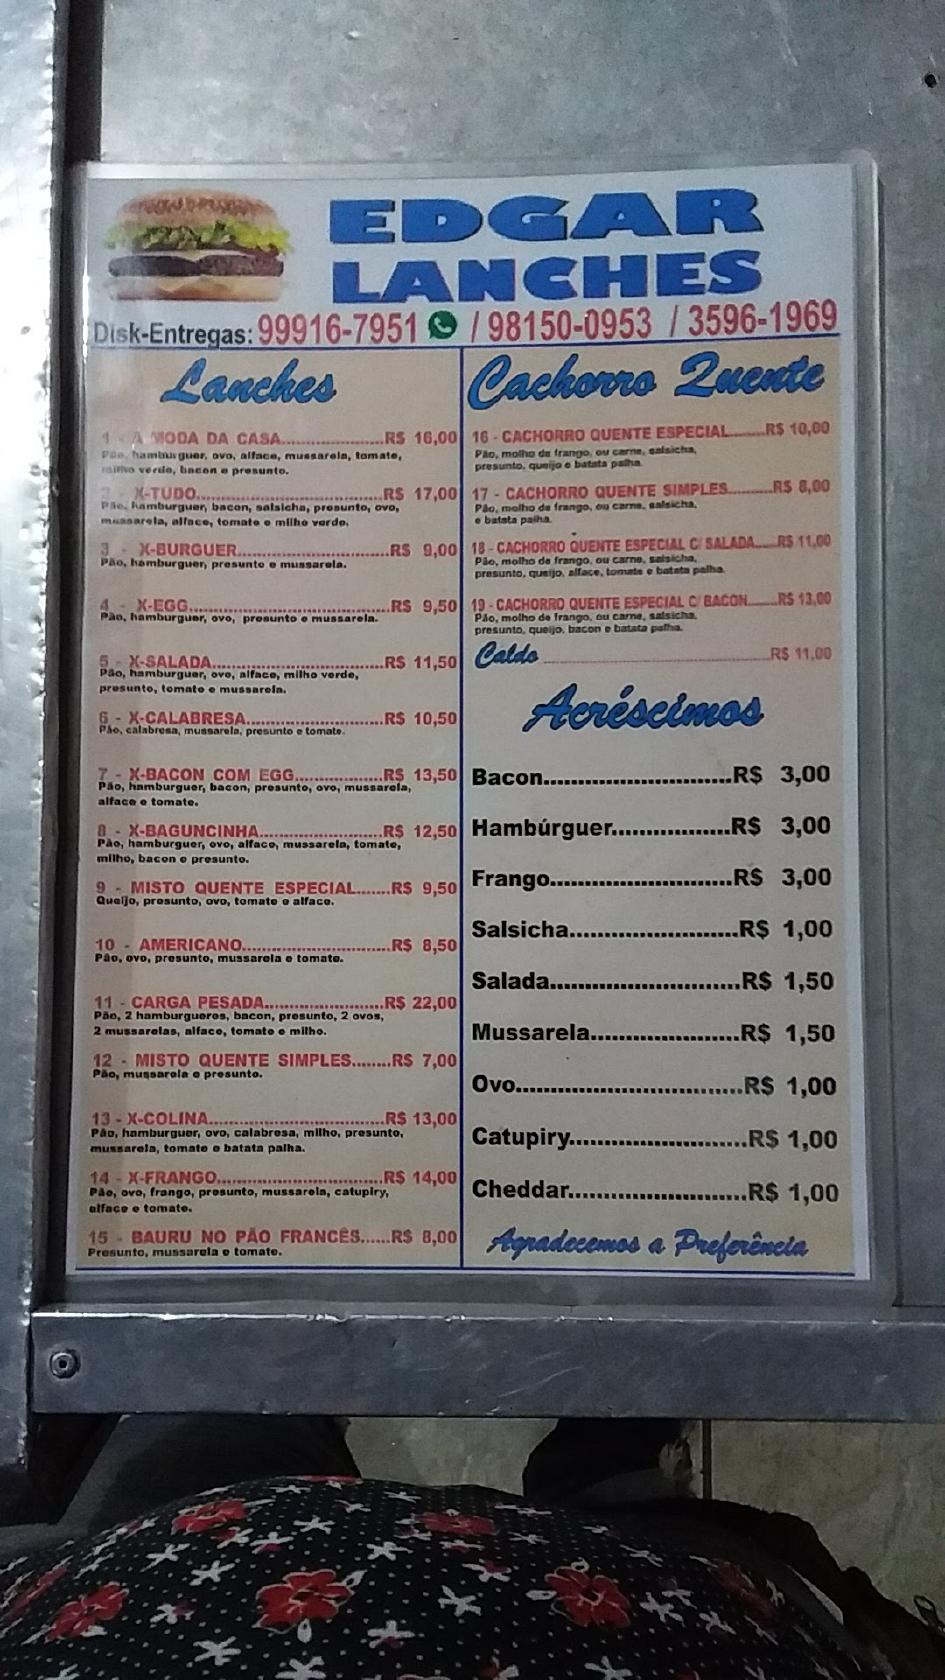 EDGAR
LANCHES
Disk-Entregas: 99916-7951 / 98150-0953 / 3596-1969
Lanches
1 - A MODA DA CASA....................R$ 16,00
Pão, hamburguer, ovo, alface, mussarela, tomate,
milho verde, bacon e presunto.
2 - X-TUDO....................R$ 17,00
Pão, hamburguer, bacon, salsicha, presunto, ovo,
mussarela, alface, tomate e milho verde.
3 - X-BURGUER....................R$ 9,00
Pão, hamburguer, presunto e mussarela.
4 - X-EGG....................R$ 9,50
Pão, hamburguer, ovo, presunto e mussarela.
5 - X-SALADA....................R$ 11,50
Pão, hamburguer, ovo, alface, milho verde,
presunto, tomate e mussarela.
6 - X-CALABRESA....................R$ 10,50
Pão, calabresa, mussarela, presunto e tomate.
7 - X-BACON COM EGG....................R$ 13,50
Pão, hamburguer, bacon, presunto, ovo, mussarela,
alface e tomate.
8 - X-BAGUNCINHA....................R$ 12,50
Pão, hamburguer, ovo, alface, mussarela, tomate,
milho, bacon e presunto.
9 - MISTO QUENTE ESPECIAL.......R$ 9,50
Queijo, presunto, ovo, tomate e alface.
10 - AMERICANO....................R$ 8,50
Pão, ovo, presunto, mussarela e tomate.
11 - CARGA PESADA....................R$ 22,00
Pão, 2 hamburgueres, bacon, presunto, 2 ovos,
2 mussarelas, alface, tomate e milho.
12 - MISTO QUENTE SIMPLES........R$ 7,00
Pão, mussarela e presunto.
13 - X-COLINA....................R$ 13,00
Pão, hamburguer, ovo, calabresa, milho, presunto,
mussarela, tomate e batata palha.
14 - X-FRANGO....................R$ 14,00
Pão, ovo, frango, presunto, mussarela, catupiry,
alface e tomate.
15 - BAURU NO PÃO FRANCÊS......R$ 8,00
Presunto, mussarela e tomate.
Cachorro Quente
16 - CACHORRO QUENTE ESPECIAL.........R$ 10,00
Pão, molho de frango, ou carne, salsicha,
presunto, queijo e batata palha.
17 - CACHORRO QUENTE SIMPLES..........R$ 8,00
Pão, molho de frango, ou carne, salsicha,
e batata palha.
18 - CACHORRO QUENTE ESPECIAL C/ SALADA......R$ 11,00
Pão, molho de frango, ou carne, salsicha,
presunto, queijo, alface, tomate e batata palha.
19 - CACHORRO QUENTE ESPECIAL C/ BACON........R$ 13,00
Pão, molho de frango, ou carne, salsicha,
presunto, queijo, bacon e batata palha.
Caldo ....................R$ 11,00
Acréscimos
Bacon....................R$ 3,00
Hambúrguer....................R$ 3,00
Frango....................R$ 3,00
Salsicha....................R$ 1,00
Salada....................R$ 1,50
Mussarela....................R$ 1,50
Ovo....................R$ 1,00
Catupiry....................R$ 1,00
Cheddar....................R$ 1,00
Agradecemos a Preferência